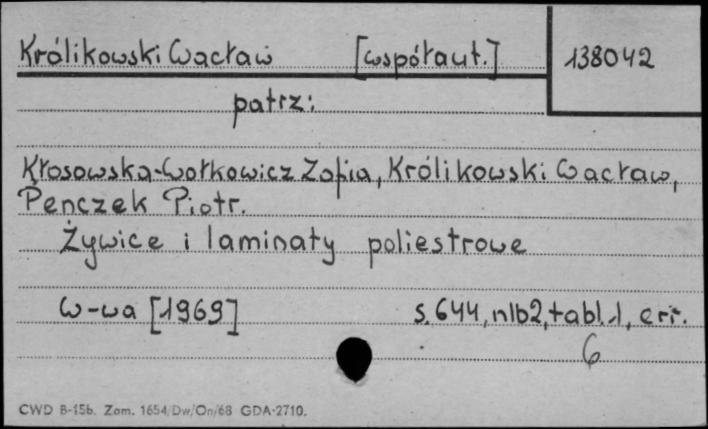 Królikowski Wacław [współaut.] 138042
patrz:
Kłosowska-Wołkowicz Zofia, Królikowski Wacław,
Penczek Piotr.
Żywice i laminaty poliestrowe
W-wa [1969] s. 644, nlb2, tabl. 1, err.
6
CWD B-15b. Zam. 1654/Dw/On/68 GDA-2710.